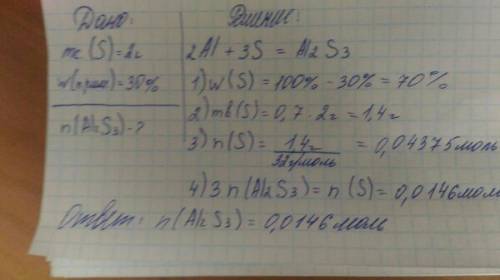 Дано:
mс(S)=2г
w(прим)=30%
n(Al2S3)-?
Решение:
2Al + 3S = Al2S3
1) w(S) = 100% - 30% = 70%
2) mв(S) = 0,7 · 2г = 1,4г
3) n(S) = 1,4г / 32г/моль = 0,04375моль
4) 3 n(Al2S3) = n(S) = 0,0146моль
Ответ: n(Al2S3) = 0,0146моль